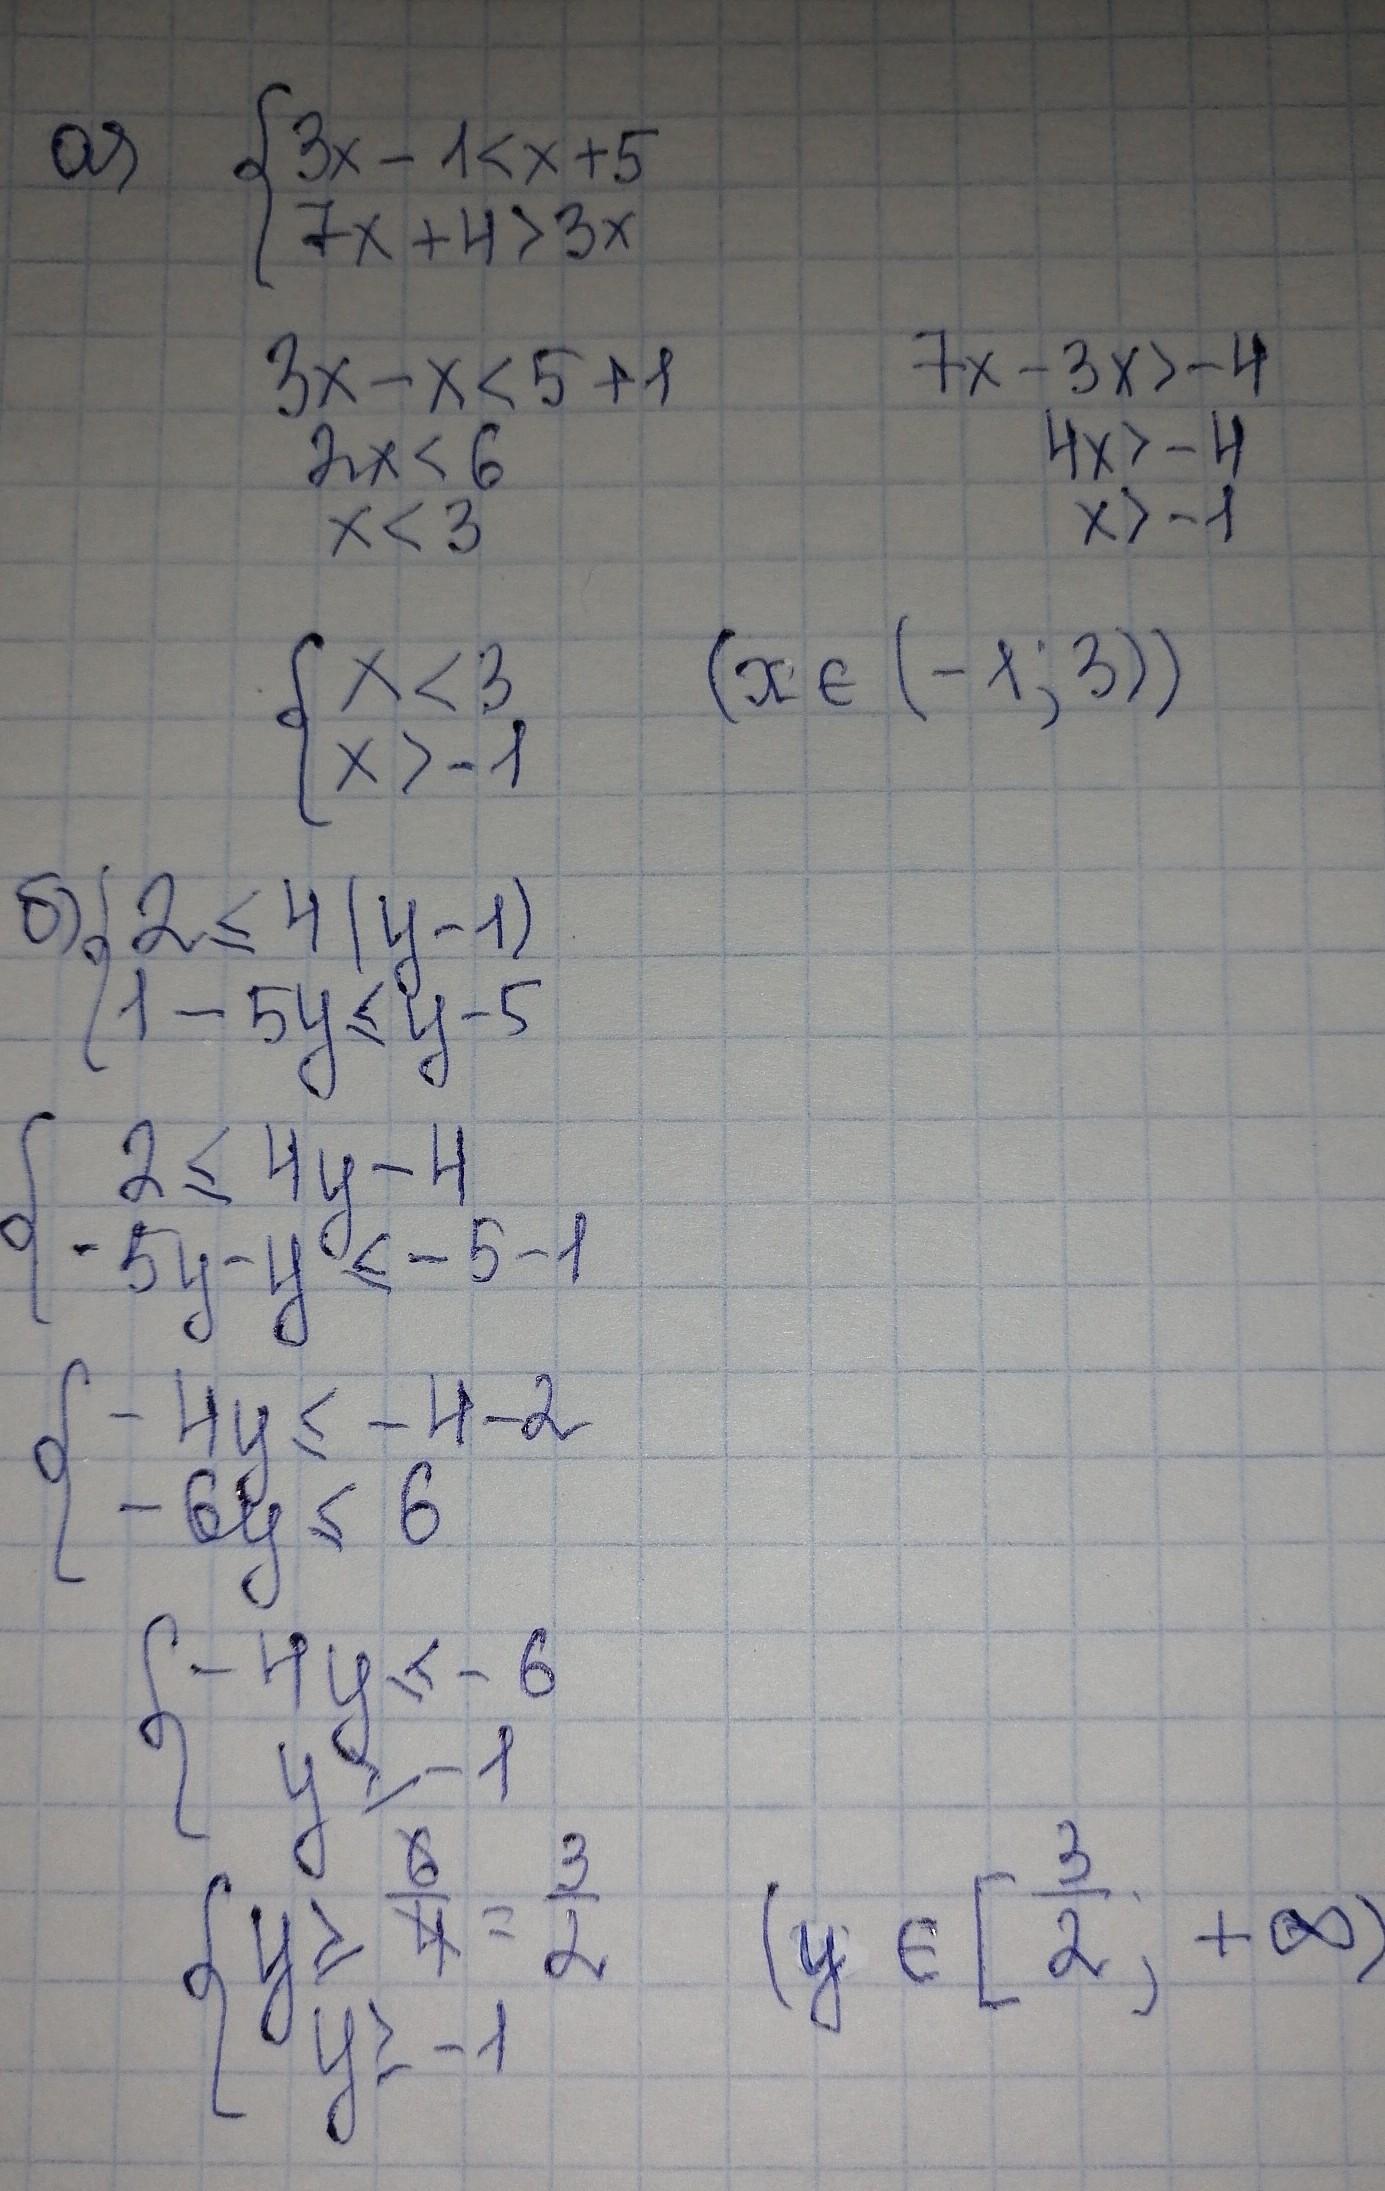 а) { 3x - 1 < x + 5
7x + 4 > 3x
3x - x < 5 + 1
2x < 6
x < 3
7x - 3x > -4
4x > -4
x > -1
{ x < 3
x > -1
(x ∈ (-1; 3))
б) { 2 ≤ 4(y - 1)
1 - 5y ≤ y - 5
{ 2 ≤ 4y - 4
-5y - y ≤ -5 - 1
{ -4y ≤ -4 - 2
-6y ≤ 6
{ -4y ≤ -6
y ≥ -1
{ y ≥ 6/4 = 3/2
y ≥ -1
(y ∈ [3/2; +∞)